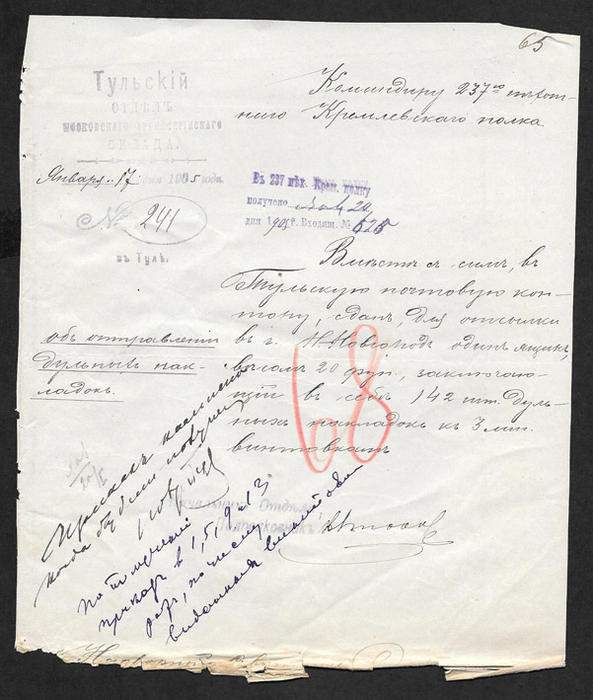 65
Тульскій
ОТДѢЛЪ
МОСКОВСКАГО АРТИЛЛЕРІЙСКАГО
СКЛАДА.
Января 17 дня 1905 года.
№ 241
въ Тулѣ.
Командиру 237го пѣхот-
наго Кремлевскаго полка
Въ 237 пѣх. Крем. полку
получено Янв 20
дня 1905 г. Входящ. № 628
Вмѣстѣ съ симъ, въ
Тульскую почтовую кон-
тору, сданъ, для отсылки
въ г. Н. Новгородъ одинъ ящикъ,
вѣсомъ 20 фун., заключаю-
щій въ себѣ 142 шт. дуль-
ныхъ накладокъ къ 3 лин.
винтовкамъ
объ отправленіи
дульныхъ нак-
ладокъ.
68
Начальникъ Отдѣла
Подполковникъ
когда будетъ
По полученіи
приказъ въ 1, 5, 9 и 13
по числу